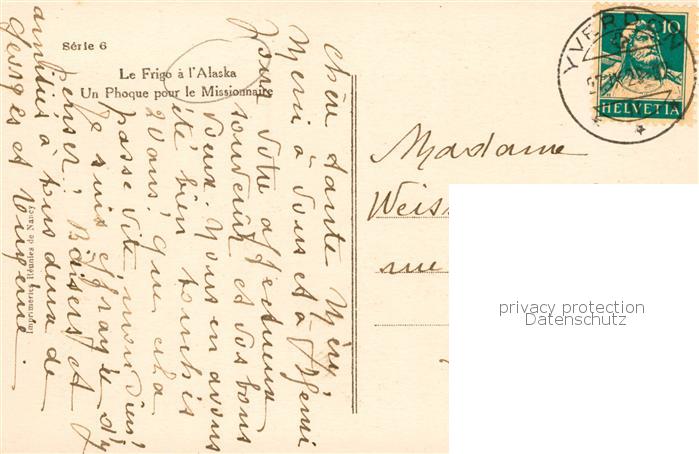 Série 6
Le Frigo à l'Alaska
Un Phoque pour le Missionnaire
Imprimeries Réunies de Nancy
chère tante Méry,
Merci à vous et à
pour votre affectueux
souvenir et vos bons
vœux. Nous en avons
été bien touchés
20 ans! que cela
passe vite, mon dieu!
Je suis effrayée d'y
penser! Baisers et
amitiés à tous deux de
Georges et
YVERDON
10
HELVETIA
Madame
Weiss
rue
privacy protection
Datenschutz